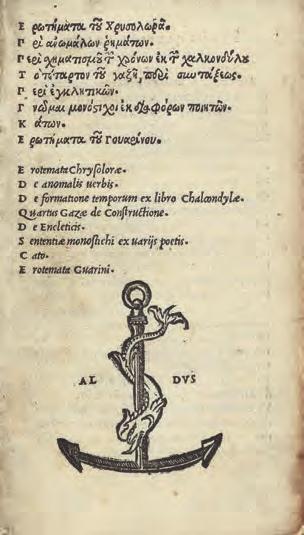 Ε ρωτήματα τοῦ Χρυσολωρᾶ.
Π ερὶ ἀνωμάλων ῥημάτων.
Π ερὶ χηματισμοῦ τῶν χρόνων ἐκ τῶν χαλκονδύλου
Τ ὸ τέταρτον τοῦ γαζῆ, περὶ συντάξεως.
Π ερὶ ἐγκλιτικῶν.
Γ νῶμαι μονόστιχοι ἐκ διαφόρων ποιητῶν.
Κ άτων.
Ε ρωτήματα τοῦ Γουαρίνου.
E rotemata Chrysoloræ.
D e anomalis uerbis.
D e formatione temporum ex libro Chalcondylæ.
Q uartus Gazæ de Constructione.
D e Encleticis.
S ententiæ monostichi ex uarijs poetis.
C ato.
E rotemata Guarini.
AL DVS